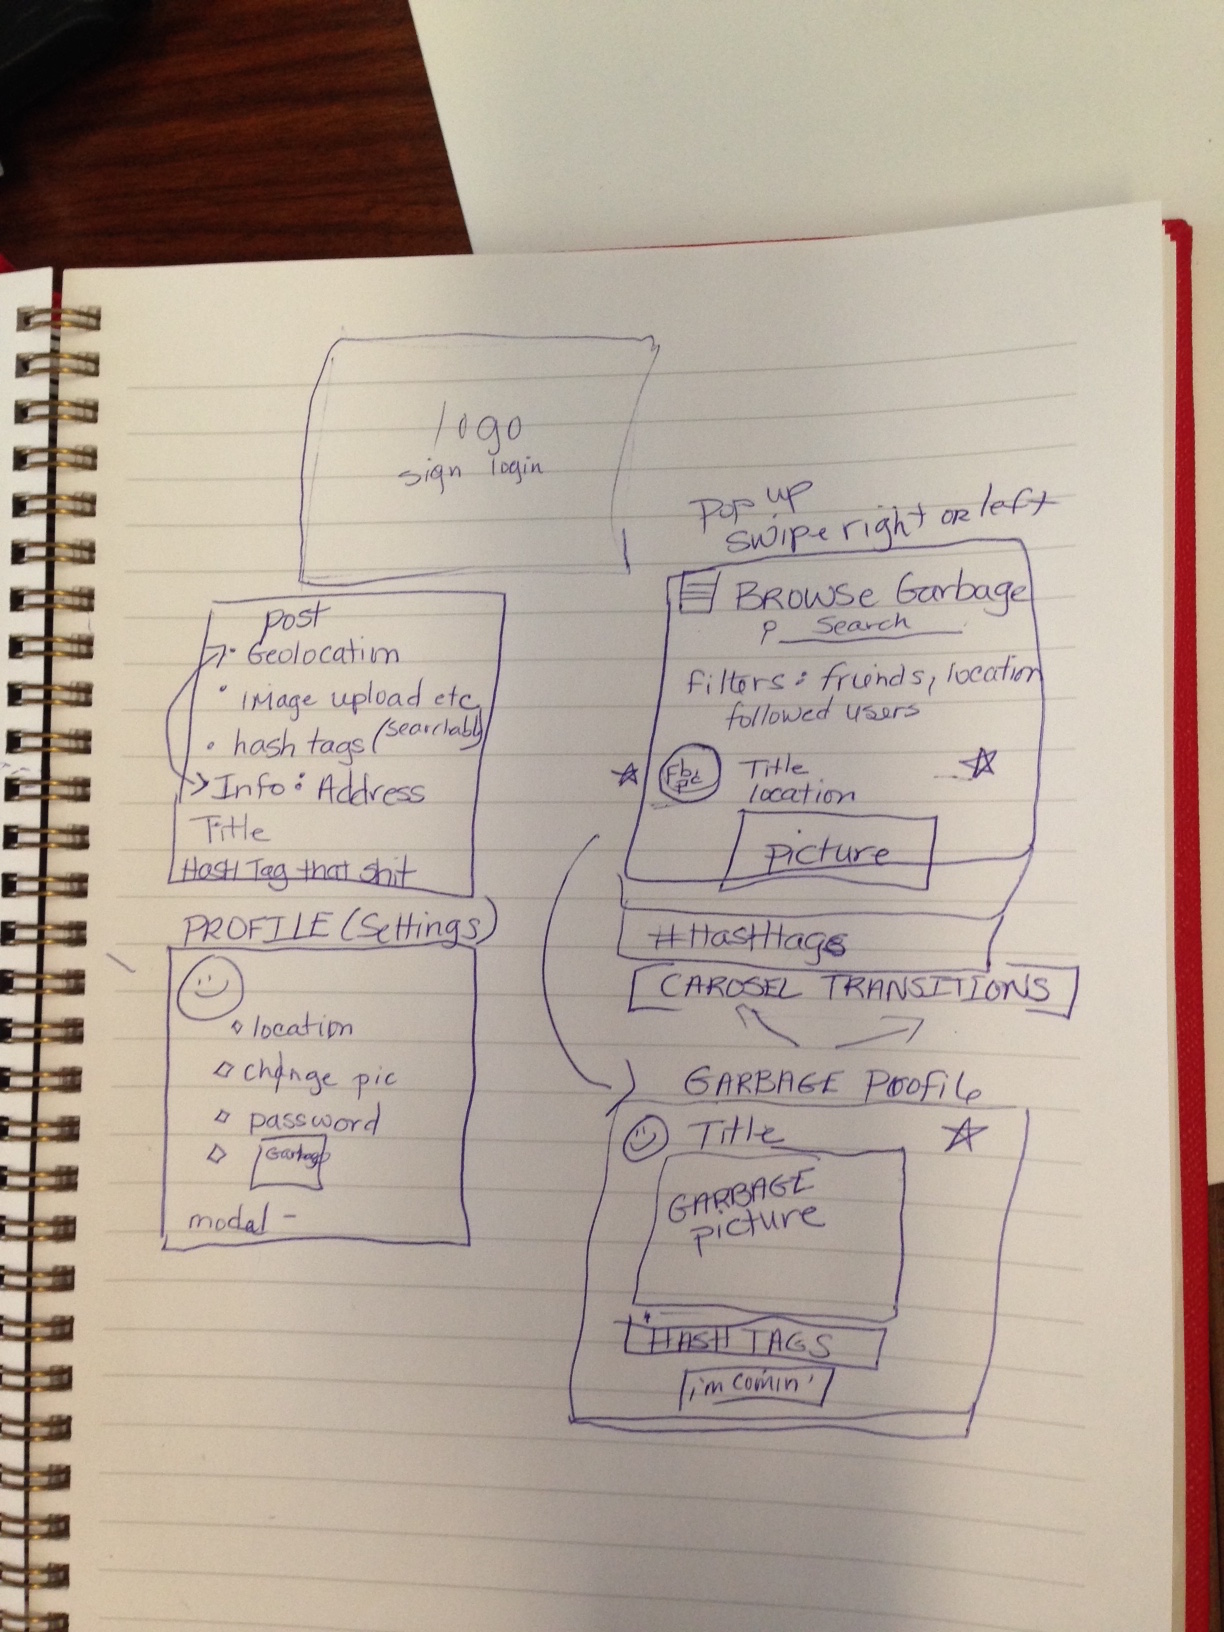 logo
sign login
post
· Geolocation
· image upload etc
· hash tags (searchably)
Info: Address
Title
Hash Tag that shit
PROFILE (Settings)
location
change pic
password
Garbage
modal -
Pop up
swipe right or left
BROWSE Garbage
Search
filters: friends, location
followed users
Fb
pic
Title
location
picture
#Hashtags
CAROSEL TRANSITIONS
GARBAGE Profile
Title
GARBAGE
picture
HASH TAGS
i'm comin'